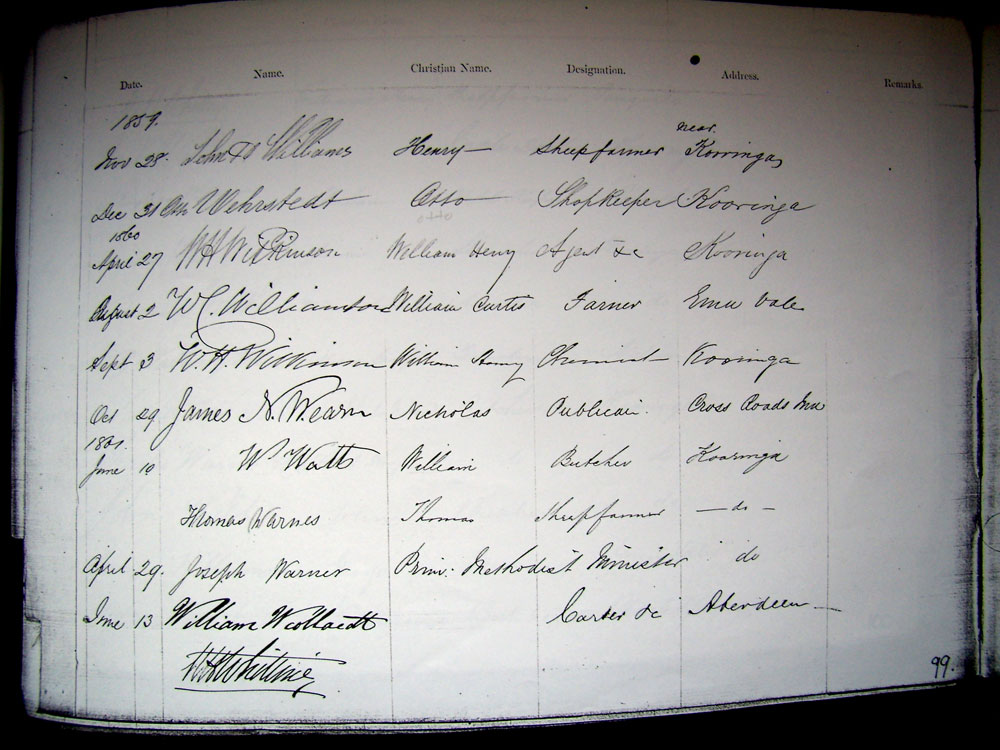 Date. Name. Christian Name. Designation. Address. Remarks.
1859.
Nov 28. John H Williams Henry Sheepfarmer near Kooringa
Dec 31 Otto Wehrstedt Otto Shopkeeper Kooringa
otto
1860
April 27 W H Wilkinson William Henry Agent &c Kooringa
August 2 W C Williamson William Curtis Farmer Emu Vale
Sept 3 W. H. Wilkinson William Henry Chemist Kooringa
Oct 29. James N. Wearn Nicholas Publican. Cross Roads Inn
1861.
June 10 Wm Watts William Butcher Kooringa
Thomas Warnes Thomas Sheepfarmer - do -
April 29. Joseph Warner Prim: Methodist Minister do
June 13 William Carter &c Aberdeen
99.